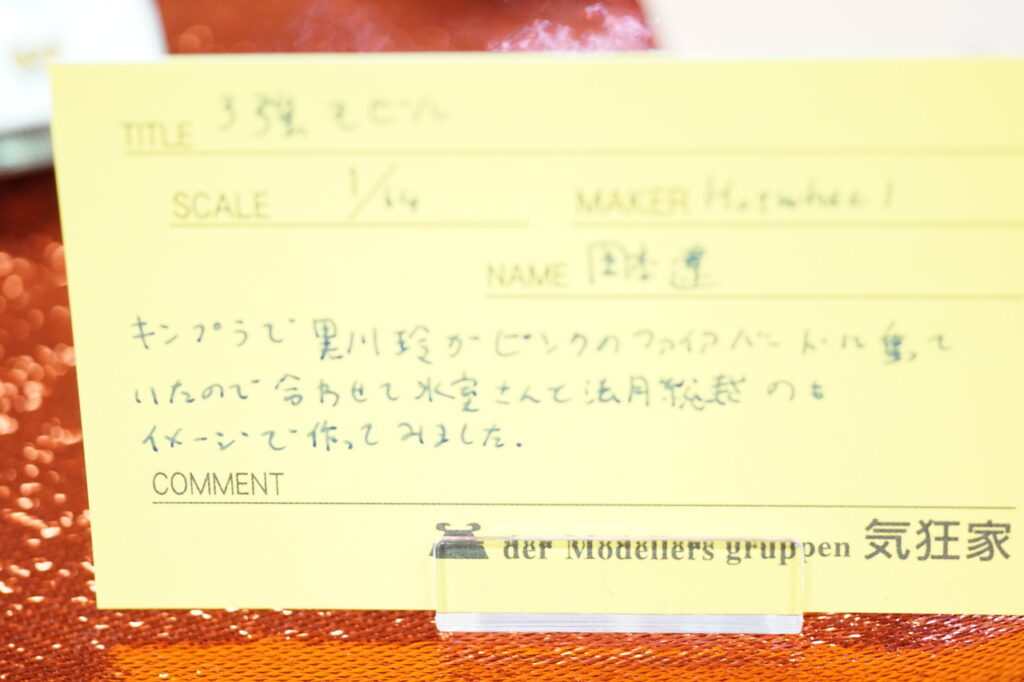 TITLE 3強マシン
SCALE 1/64 MAKER Hotwheel
NAME
キンプラで黒川玲がピンクのファイアバードに乗って
いたので合わせて氷室さんと法月総裁のも
イメージで作ってみました.
COMMENT
der Modellers gruppen 気狂家